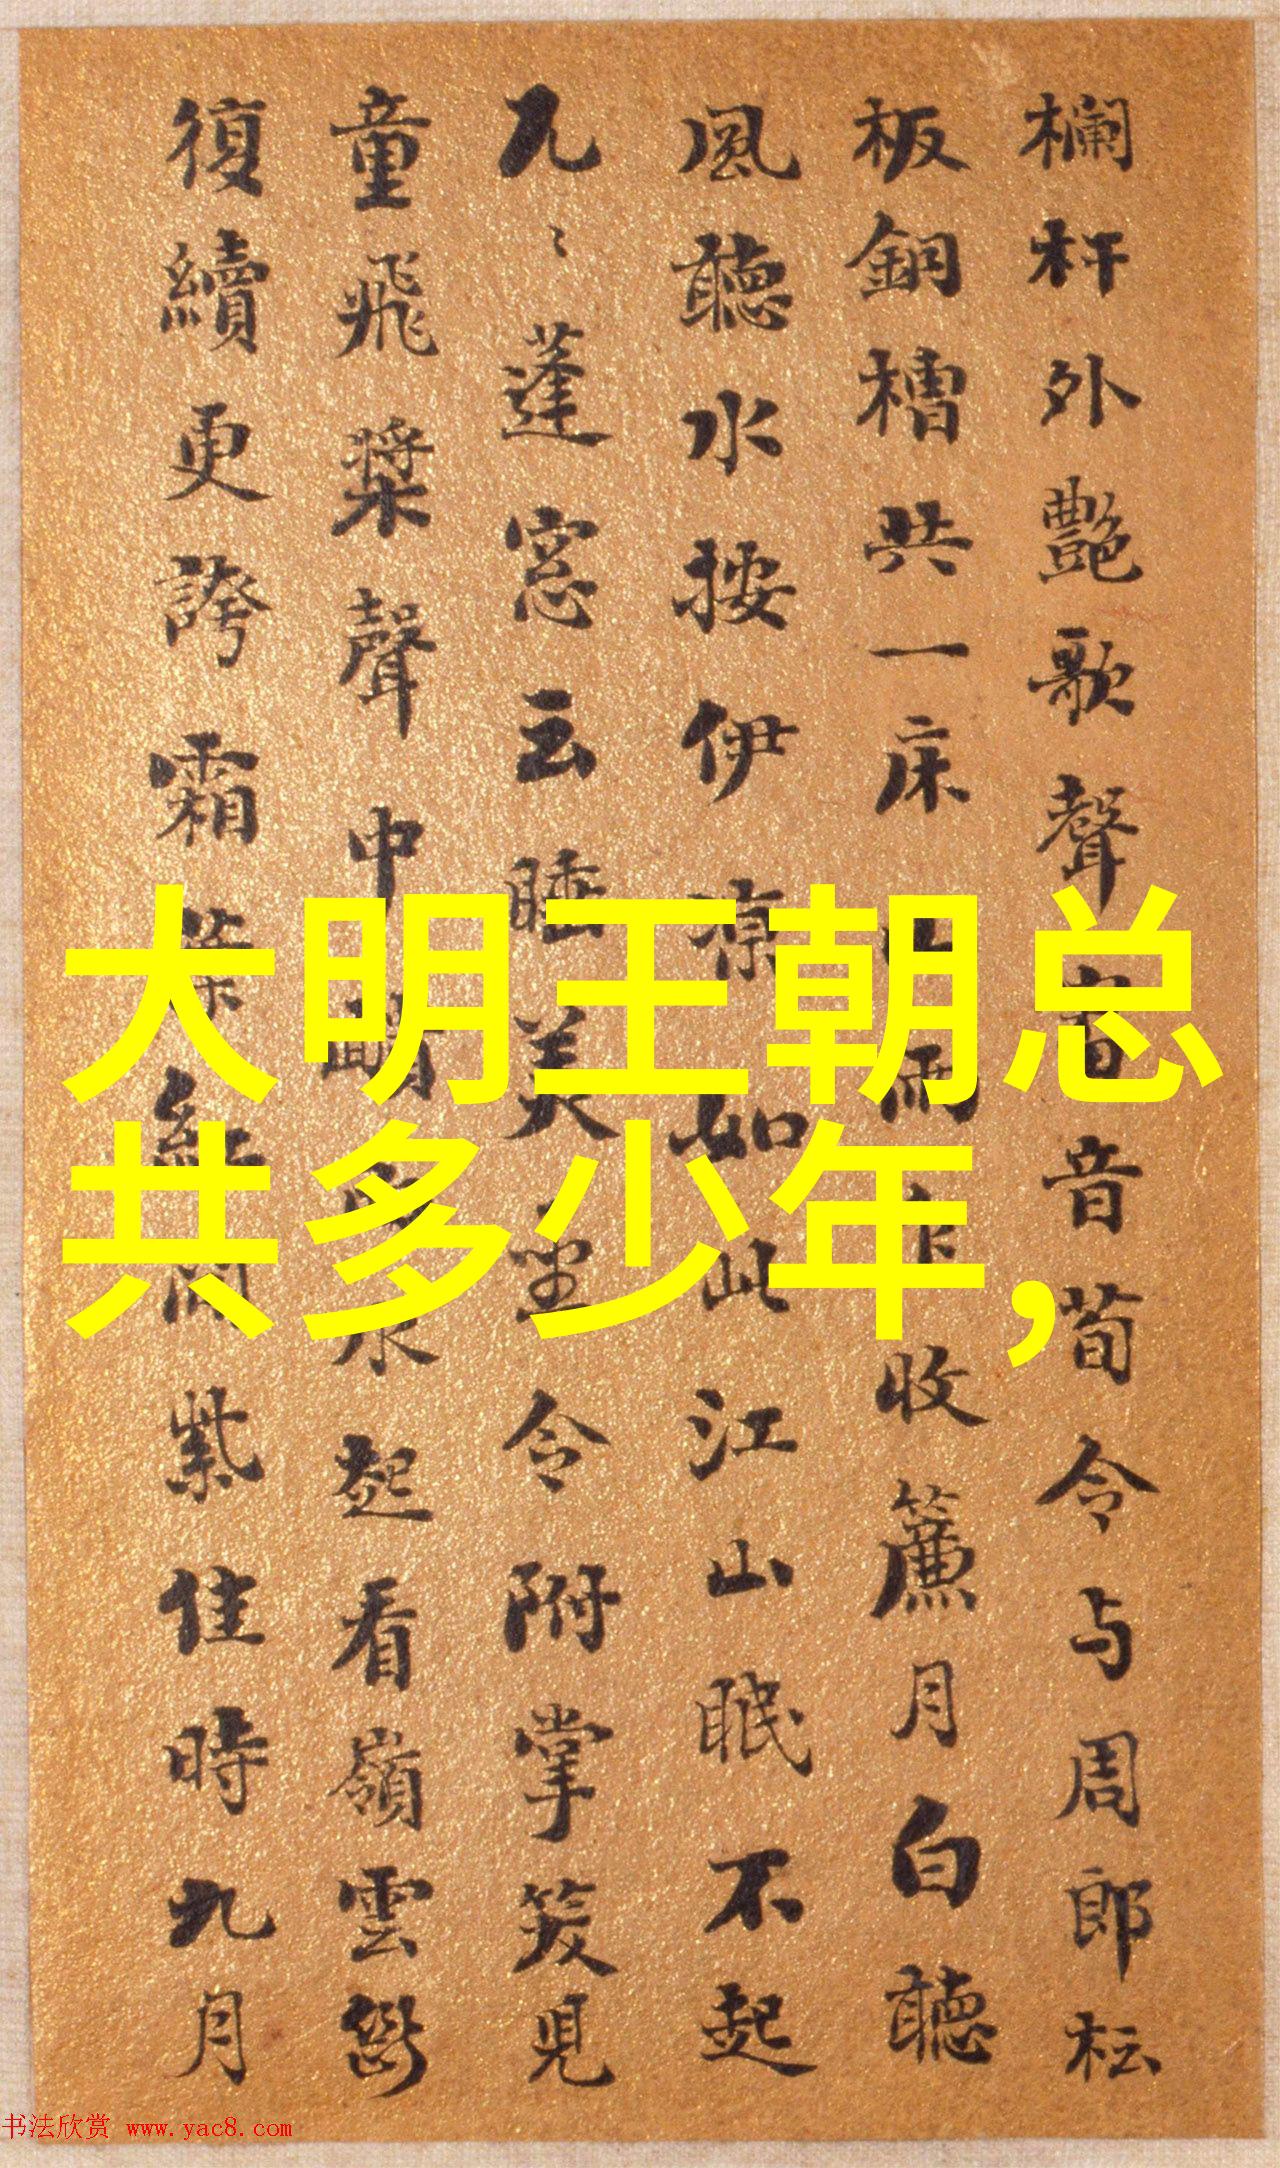 欄杆外豔歌聲
音荀令与周郎枟
板銅槽共一床
收簾月白聽
風聽水按伊涼如此江山眠不起
九〻蓬窓云睡美
令附掌笑見
童飛槳聲中
起看嶺雲
復續更誇霜葉
紫佳時九月
大明王朝总
共多少年,
书法欣赏 www.yac8.com